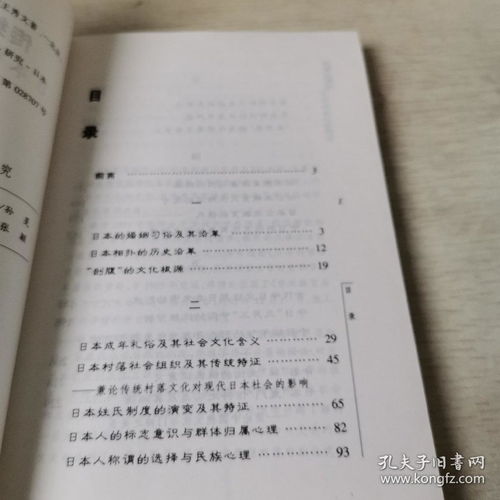 王秀文著
研究-日本
第028707号
究
孙
张
目
录
前言 3
一
日本的婚姻习俗及其沿革 3
日本相扑的历史沿革 12
“剖腹”的文化根源 19
二
日本成年礼俗及其社会文化含义 29
日本村落社会组织及其传统特征 45
——兼论传统村落文化对现代日本社会的影响
日本姓氏制度的演变及其特征 65
日本人的标志意识与群体归属心理 82
日本人称谓的选择与民族心理 93
1
目录
孔夫子旧书网
www.kongfz.com